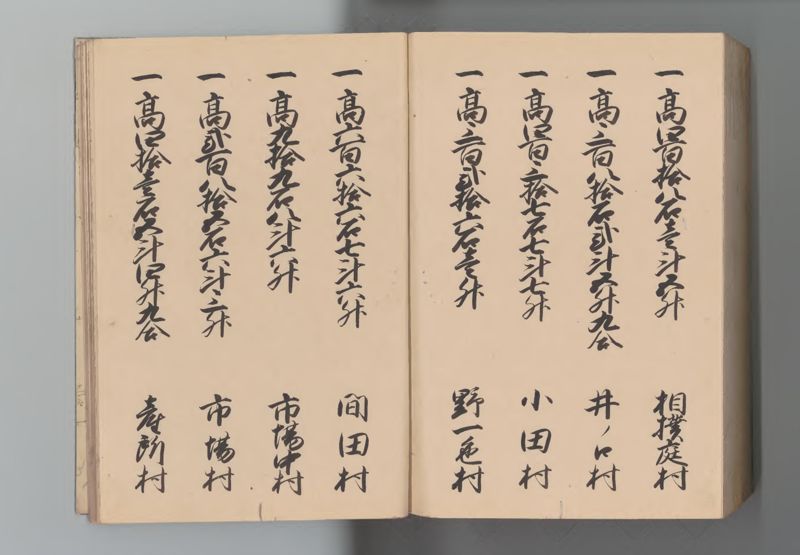 一高四百拾八石壱斗五升　相撲庭村
一高三百八拾石弐斗五升九合　井ノ口村
一高四百三拾七石七斗七升　小田村
一高三百弐拾六石壱升　野一色村
一高六百六拾六石七斗六升　間田村
一高九拾九石八斗六升　市場中村
一高弐百八拾五石六斗三升　市場村
一高四拾壱石五斗四升九合　春照村